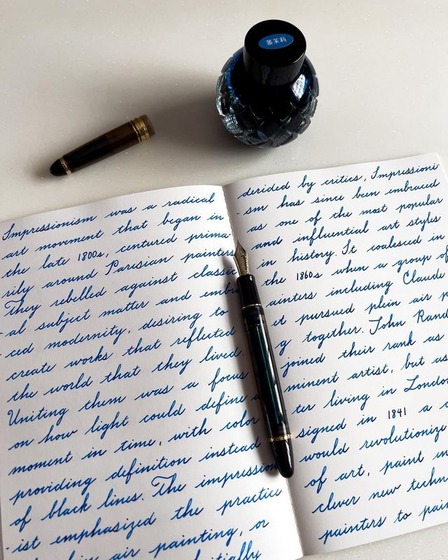 Impressionism was a radical
art movement that began in
the late 1800s, centured prima-
ily around Parisian painters
They rebelled against classic
al subject matter and emb
ced modernity, desiring to
create works that reflected
the world that they lived.
Uniting them was a focus
on how light could define a
moment in time, with color
providing definition instead
of black lines. The impression
ist emphasized the practice
air painting, or
derided by critics, Impressions
sm has since been embraced
as one of the most popular
and influential art styles
in history. It coalesced i
the 1860s when a group of
ainters including Claude
et pursued plein air
g together. John Rand
joined their rank as
minent artist, but
ter living in London
signed in 1841 a
would revolutionize
of art, paint in
clever new techn
painters to pain